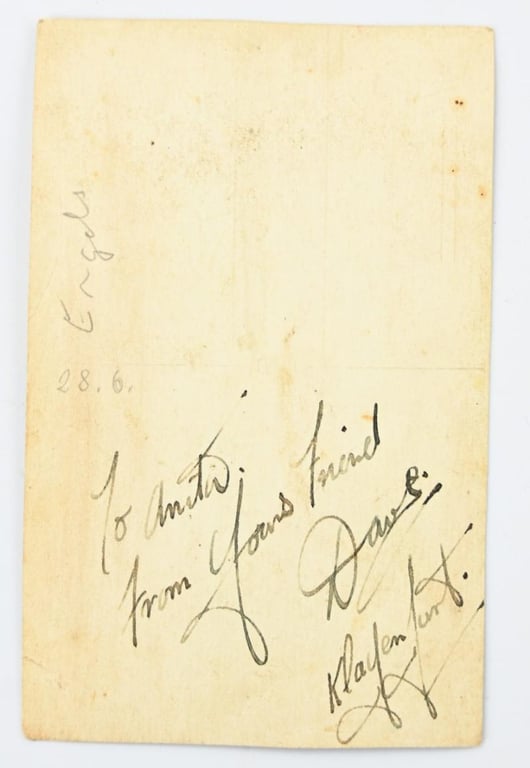 Engels
28.6.
To Anita.
From Yours Friend
Dave.
Klagenfurt.